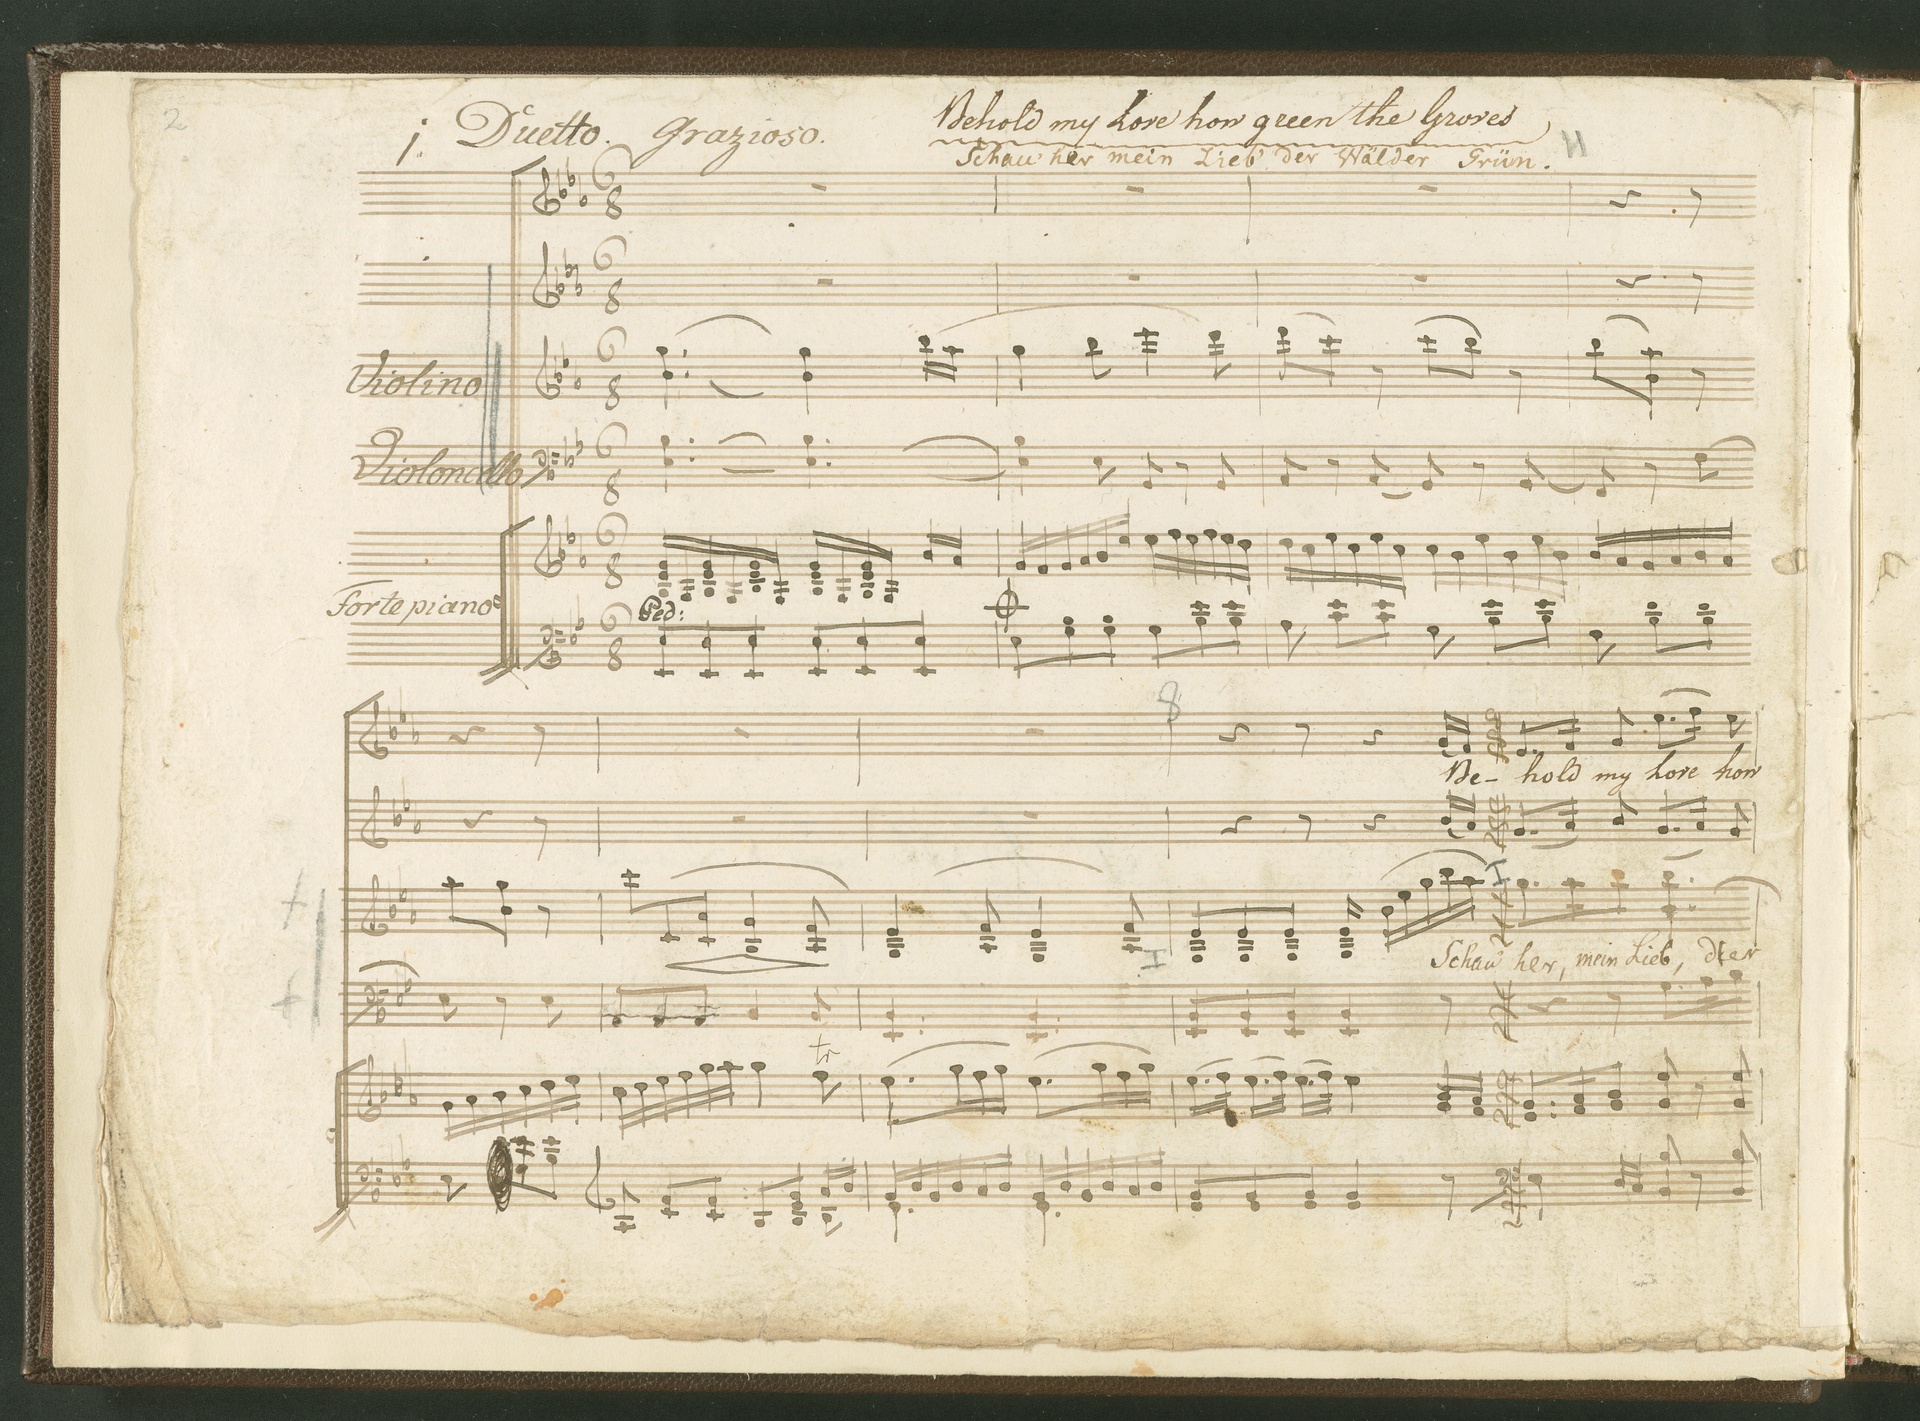 2
1. Duetto. Grazioso. Behold my Love how green the Groves
Schau her mein Lieb der Wälder Grün.
Violino
Violoncello
Fortepiano
Ped:
8
Be- hold my Love how
Schau her, mein Lieb, der
tr